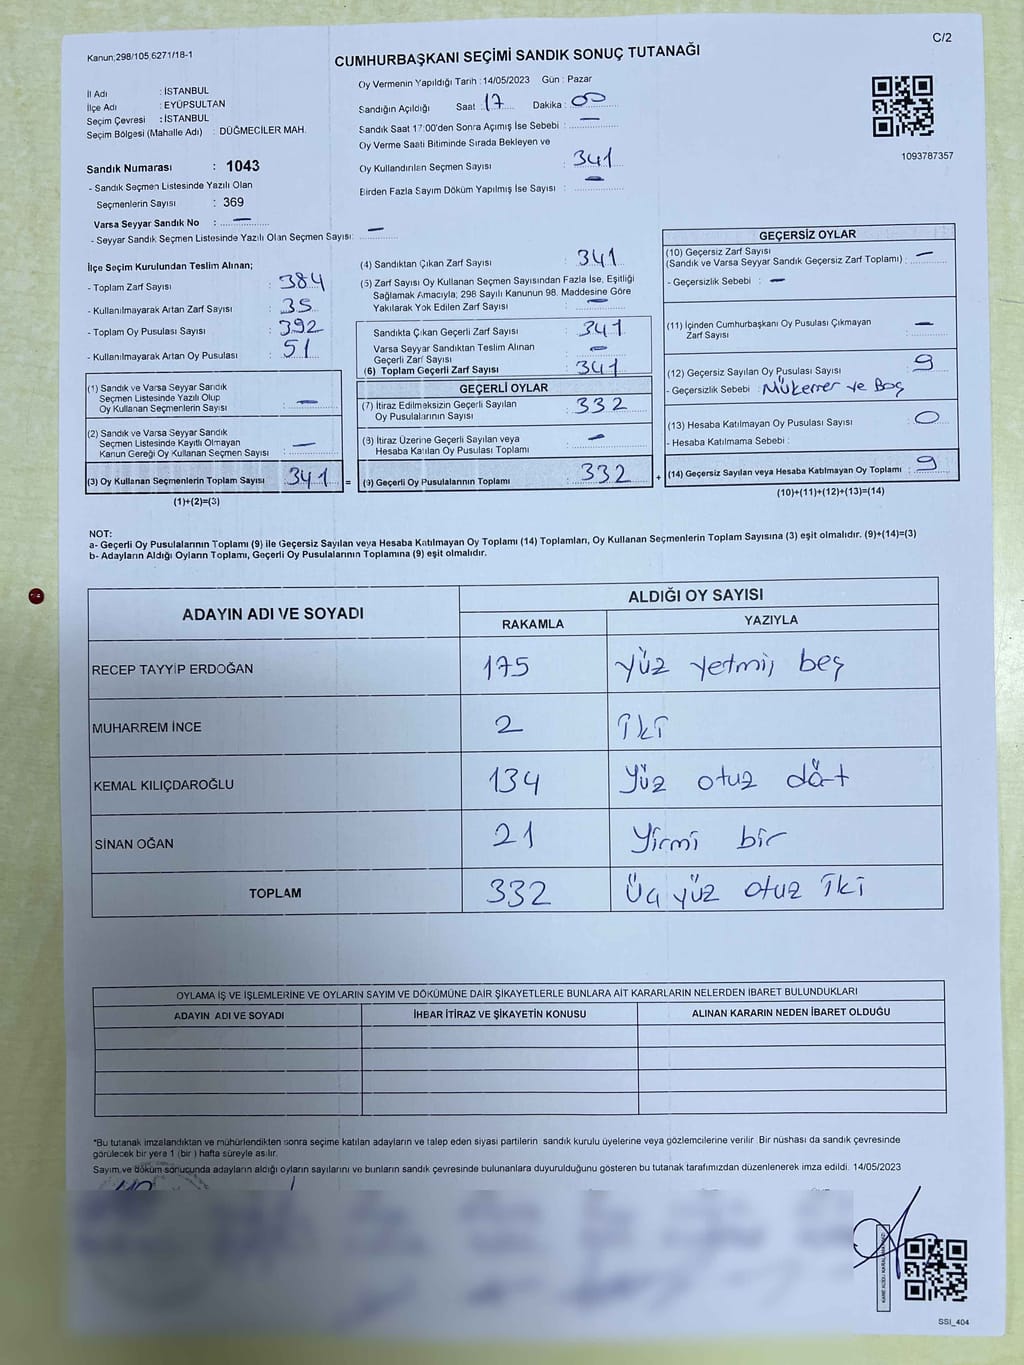 Kanun;298/105 6271/18-1
C/2
CUMHURBAŞKANI SEÇİMİ SANDIK SONUÇ TUTANAĞI
İl Adı : İSTANBUL
İlçe Adı : EYÜPSULTAN
Seçim Çevresi : İSTANBUL
Seçim Bölgesi (Mahalle Adı) : DÜĞMECİLER MAH.
Sandık Numarası : 1043
- Sandık Seçmen Listesinde Yazılı Olan
Seçmenlerin Sayısı : 369
Varsa Seyyar Sandık No : —
- Seyyar Sandık Seçmen Listesinde Yazılı Olan Seçmen Sayısı: —
Oy Vermenin Yapıldığı Tarih : 14/05/2023 Gün : Pazar
Sandığın Açıldığı Saat 17 Dakika : 00
Sandık Saat 17:00'den Sonra Açımış İse Sebebi : —
Oy Verme Saati Bitiminde Sırada Bekleyen ve
Oy Kullandırılan Seçmen Sayısı : 341
Birden Fazla Sayım Döküm Yapılmış İse Sayısı : —
1093787357
İlçe Seçim Kurulundan Teslim Alınan;
- Toplam Zarf Sayısı : 384
- Kullanılmayarak Artan Zarf Sayısı : 35
- Toplam Oy Pusulası Sayısı : 392
- Kullanılmayarak Artan Oy Pusulası : 51
(1) Sandık ve Varsa Seyyar Sandık
Seçmen Listesinde Yazılı Olup
Oy Kullanan Seçmenlerin Sayısı : —
(2) Sandık ve Varsa Seyyar Sandık
Seçmen Listesinde Kayıtlı Olmayan
Kanun Gereği Oy Kullanan Seçmen Sayısı : —
(3) Oy Kullanan Seçmenlerin Toplam Sayısı : 341 =
(1)+(2)=(3)
(4) Sandıktan Çıkan Zarf Sayısı : 341
(5) Zarf Sayısı Oy Kullanan Seçmen Sayısından Fazla İse, Eşitliği
Sağlamak Amacıyla; 298 Sayılı Kanunun 98. Maddesine Göre
Yakılarak Yok Edilen Zarf Sayısı : —
Sandıkta Çıkan Geçerli Zarf Sayısı : 341
Varsa Seyyar Sandıktan Teslim Alınan
Geçerli Zarf Sayısı : —
(6) Toplam Geçerli Zarf Sayısı : 341
GEÇERLİ OYLAR
(7) İtiraz Edilmeksizin Geçerli Sayılan
Oy Pusulalarının Sayısı : 332
(8) İtiraz Üzerine Geçerli Sayılan veya
Hesaba Katılan Oy Pusulası Toplamı : —
(9) Geçerli Oy Pusulalarının Toplamı : 332 +
GEÇERSİZ OYLAR
(10) Geçersiz Zarf Sayısı
(Sandık ve Varsa Seyyar Sandık Geçersiz Zarf Toplamı) : —
- Geçersizlik Sebebi : —
(11) İçinden Cumhurbaşkanı Oy Pusulası Çıkmayan
Zarf Sayısı : —
(12) Geçersiz Sayılan Oy Pusulası Sayısı : 9
- Geçersizlik Sebebi : Mükerrer ve Boş
(13) Hesaba Katılmayan Oy Pusulası Sayısı : 0
- Hesaba Katılmama Sebebi :
(14) Geçersiz Sayılan veya Hesaba Katılmayan Oy Toplamı : 9
(10)+(11)+(12)+(13)=(14)
NOT:
a- Geçerli Oy Pusulalarının Toplamı (9) ile Geçersiz Sayılan veya Hesaba Katılmayan Oy Toplamı (14) Toplamları, Oy Kullanan Seçmenlerin Toplam Sayısına (3) eşit olmalıdır. (9)+(14)=(3)
b- Adayların Aldığı Oyların Toplamı, Geçerli Oy Pusulalarının Toplamına (9) eşit olmalıdır.
ADAYIN ADI VE SOYADI ALDIĞI OY SAYISI
RAKAMLA YAZIYLA
RECEP TAYYİP ERDOĞAN 175 yüz yetmiş beş
MUHARREM İNCE 2 İki
KEMAL KILIÇDAROĞLU 134 Yüz otuz dört
SİNAN OĞAN 21 Yirmi bir
TOPLAM 332 Üç yüz otuz iki
OYLAMA İŞ VE İŞLEMLERİNE VE OYLARIN SAYIM VE DÖKÜMÜNE DAİR ŞİKAYETLERLE BUNLARA AİT KARARLARIN NELERDEN İBARET BULUNDUKLARI
ADAYIN ADI VE SOYADI İHBAR İTİRAZ VE ŞİKAYETİN KONUSU ALINAN KARARIN NEDEN İBARET OLDUĞU
*Bu tutanak imzalandıktan ve mühürlendikten sonra seçime katılan adayların ve talep eden siyasi partilerin sandık kurulu üyelerine veya gözlemcilerine verilir. Bir nüshası da sandık çevresinde
görülecek bir yere 1 (bir ) hafta süreyle asılır.
Sayım ve döküm sonucunda adayların aldığı oyların sayılarını ve bunların sandık çevresinde bulunanlara duyurulduğunu gösteren bu tutanak tarafımızdan düzenlenerek imza edildi. 14/05/2023
SSI_404